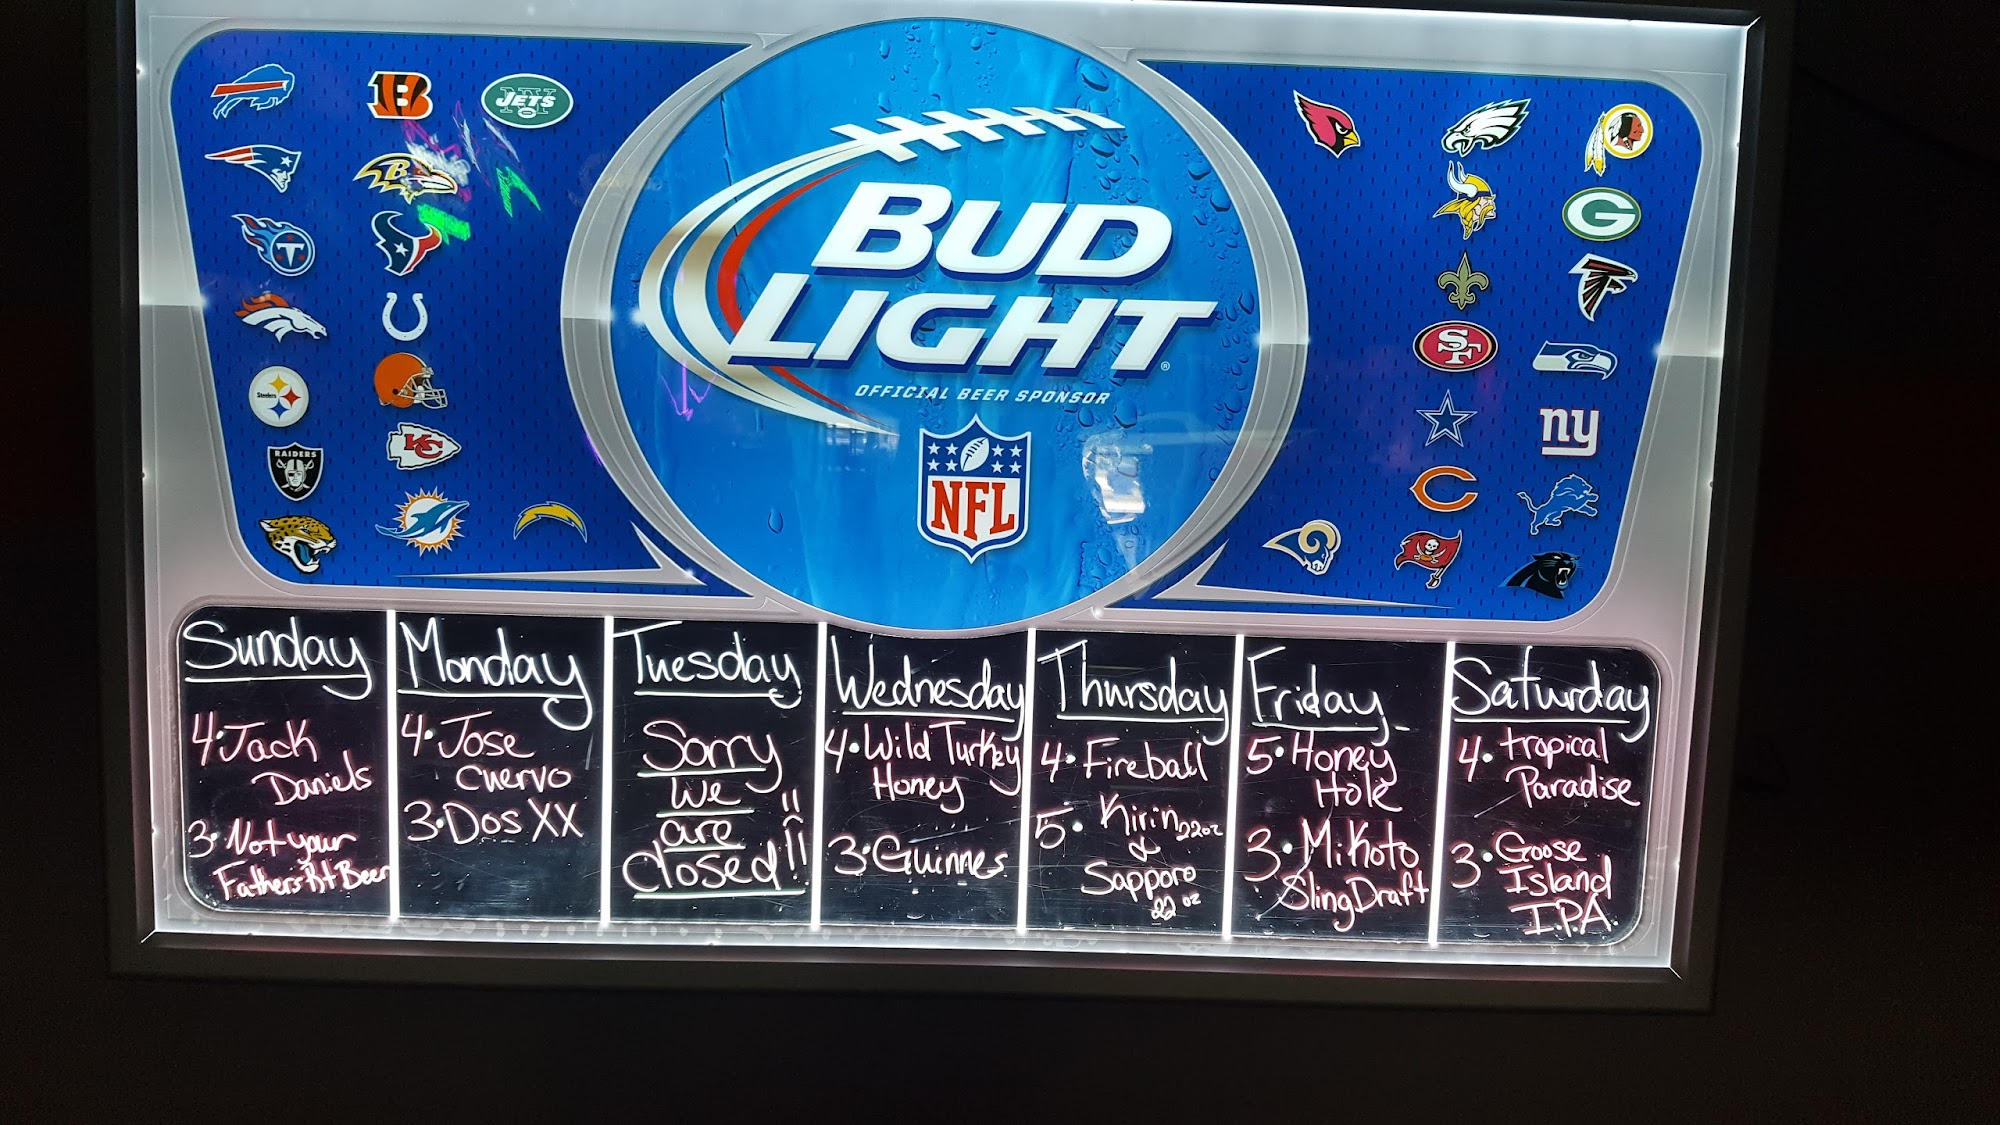 JETS
BUD
LIGHT
®
OFFICIAL BEER SPONSOR
NFL
Steelers
RAIDERS
KC
SF
ny
G
T
B
Sunday
4·Jack
Daniels
3·Not your
Father's Rt Beer
Monday
4·Jose
Cuervo
3·Dos XX
Tuesday
Sorry
We
are
Closed!!
Wednesday
4·Wild Turkey
Honey
3·Guinnes
Thursday
4·Fireball
5·Kirin 22oz
&
Sapporo
22 oz
Friday
5·Honey
Hole
3·MiKoto
Sling Draft
Saturday
4·tropical
Paradise
3·Goose
Island
I.P.A.